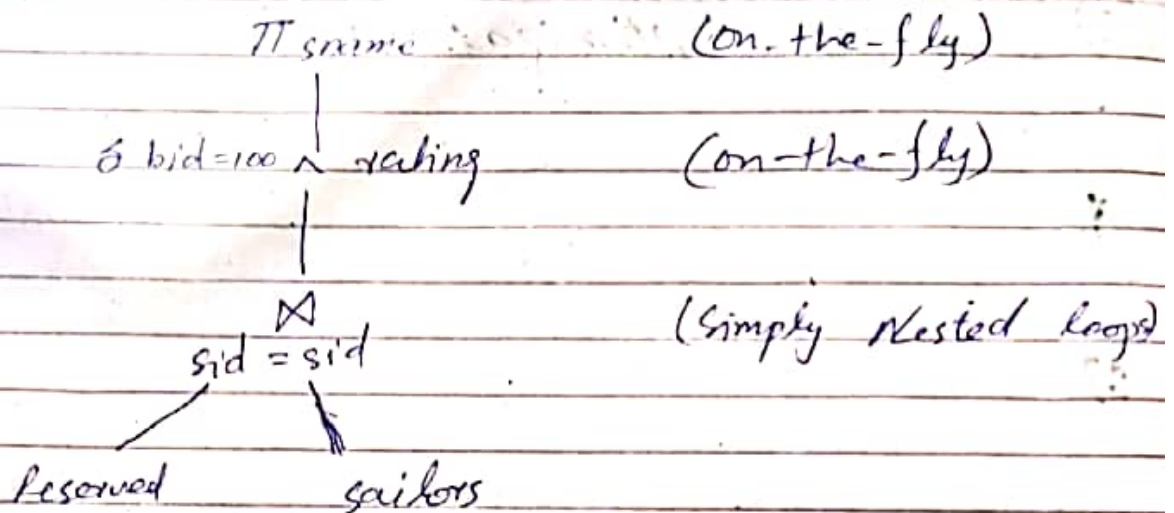 π sname (on-the-fly)
б bid=100 ∧ rating (on-the-fly)
⋈ (Simply Nested loops)
sid = sid
Reserved sailors